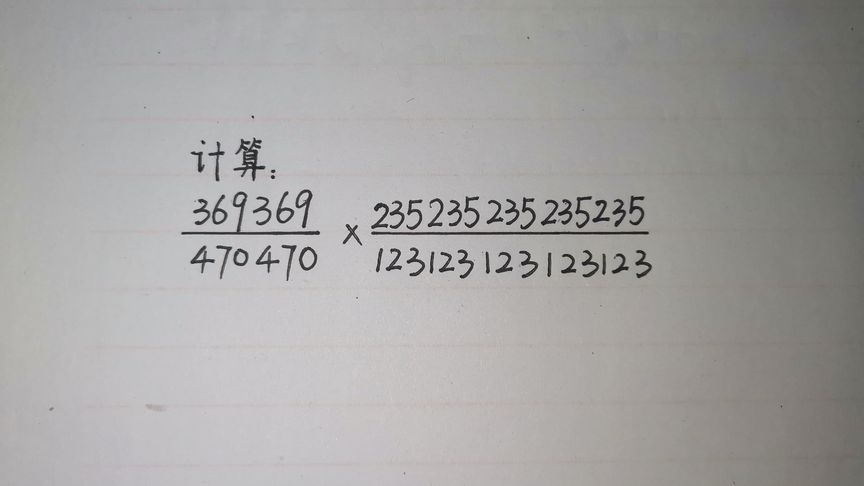 计算：
369369/470470 × 235235235235235/123123123123123